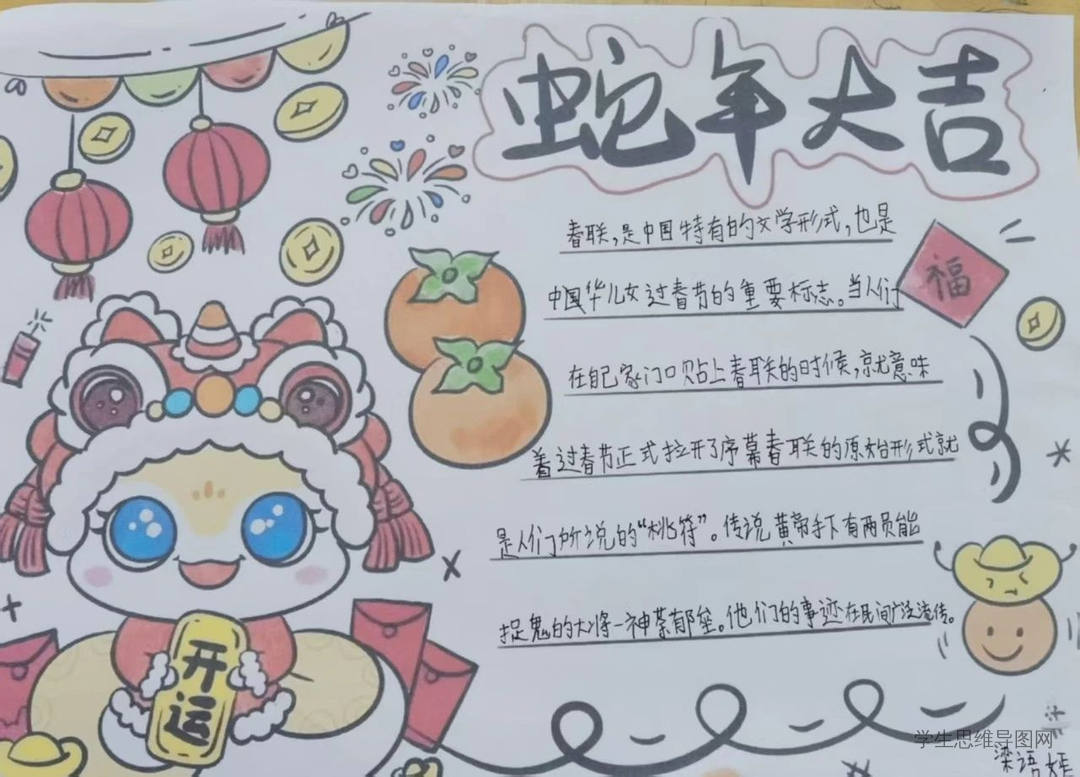 蛇年大吉
春联,是中国特有的文学形式,也是
中国华儿女过春节的重要标志。当人们
福
在自己家门口贴上春联的时候,就意味
着过春节正式拉开了序幕春联的原始形式就
是人们所说的“桃符”。传说黄帝手下有两员能
捉鬼的大将-神荼郁垒。他们的事迹在民间广泛流传。
开运
学生思维导图网
梁语嫣